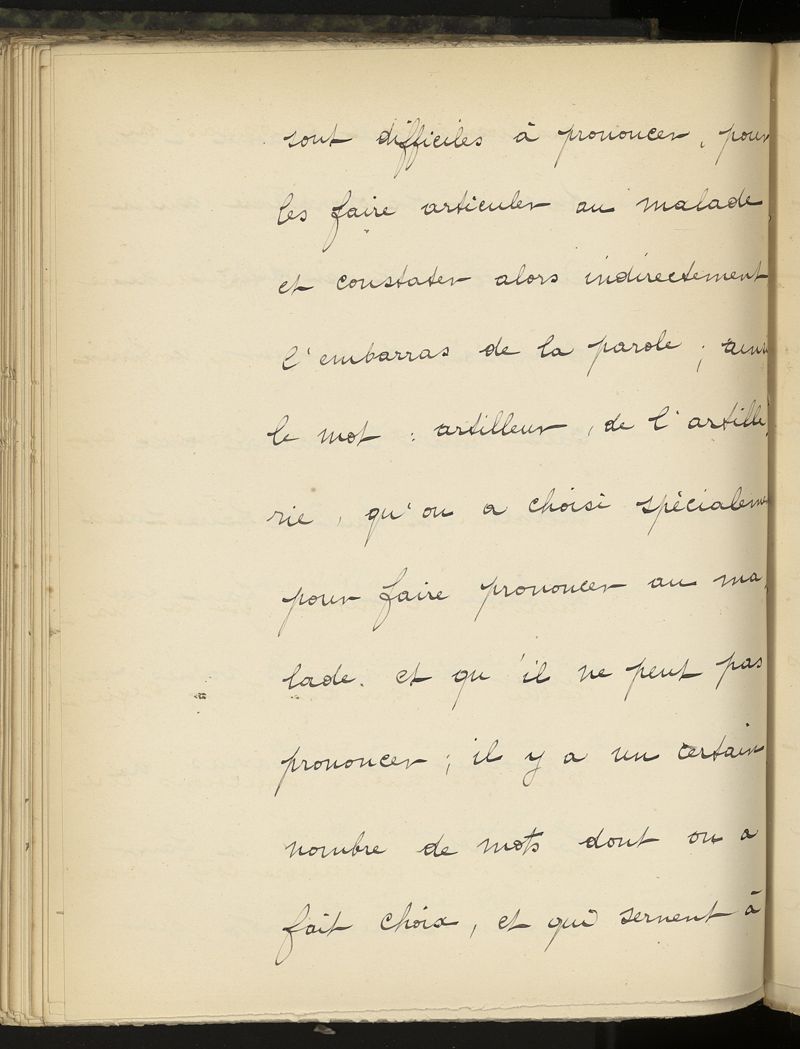 sont difficiles à prononcer, pour
les faire articuler au malade,
et constater alors indirectement
l'embarras de la parole ; ainsi
le mot : artilleur, de l'artille
rie, qu'on a choisi spécialem
pour faire prononcer au ma,
lade. et qu'il ne peut pas
prononcer ; il y a un certain
nombre de mots dont on a
fait choix, et qui servent à